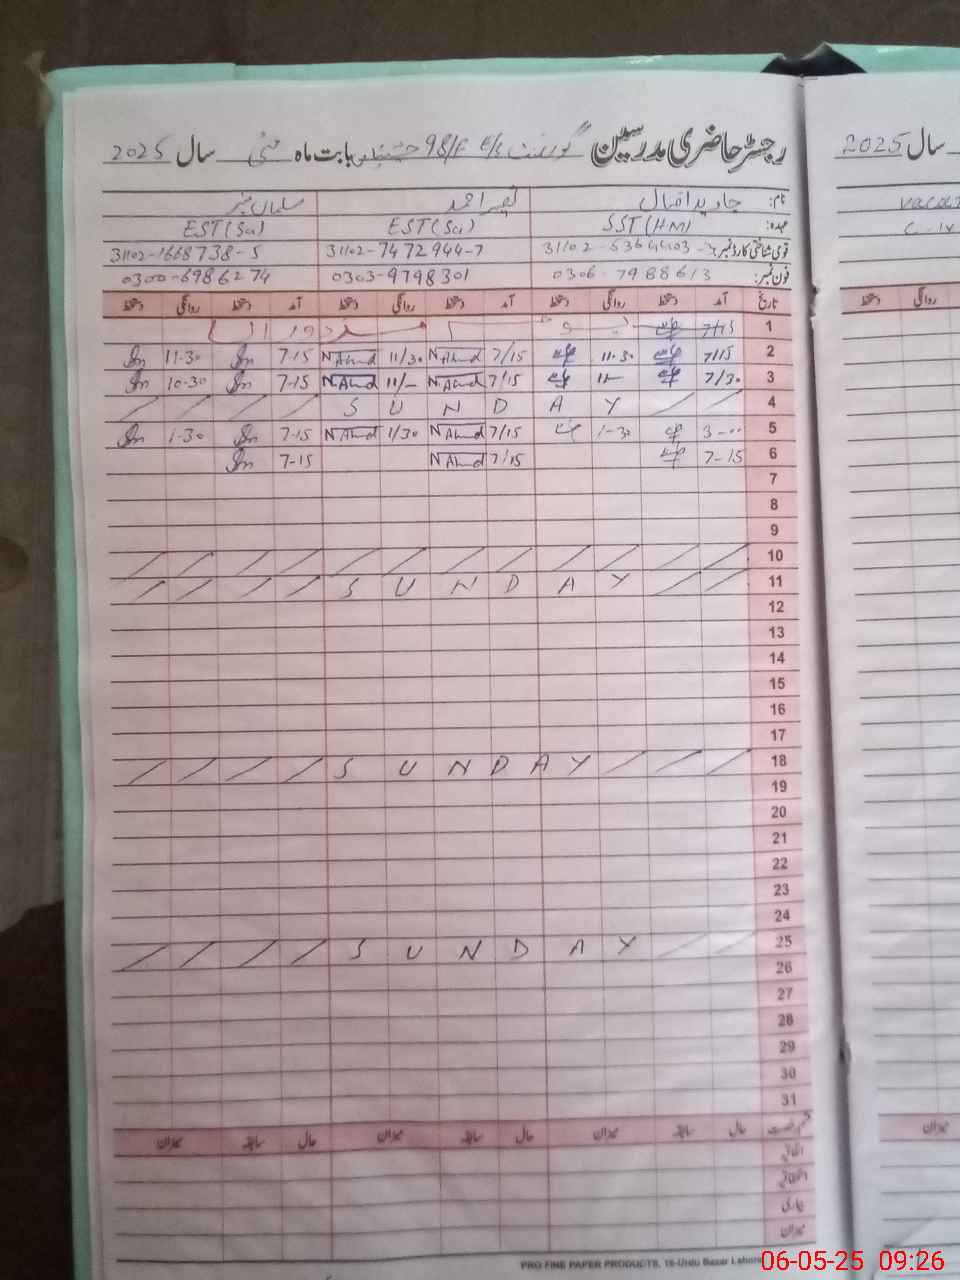 رجسٹر حاضری مدرسین گورنمنٹ E/S 98/F بابت ماہ مئی سال 2025
نام: جاوید اقبال نصیر احمد سلمان
عہدہ: SST (HM) EST (Sci) EST (Sci)
قومی شناختی کارڈ نمبر: 31102-7472944-7 31102-1668738-5
فون نمبر: 0306-7988613 0303-9798301 0300-6986274
تاریخ آمد دستخط روانگی دستخط آمد دستخط روانگی دستخط آمد دستخط روانگی دستخط
1 7/15
2 7/15 11-30 7/15 N Ahmd 11/30 N Ahmd 7-15 11-30
3 7/30 11- 7/15 N Ahmd 11/- N Ahmd 7-15 10-30
4 S U N D A Y
5 1-30 7/15 N Ahmd 1/30 N Ahmd 7-15 1-30
6 7-15 7/15 N Ahmd 7-15
7
8
9
10
11 S U N D A Y
12
13
14
15
16
17
18 S U N D A Y
19
20
21
22
23
24
25 S U N D A Y
26
27
28
29
30
31
حال سابقہ میزان حال سابقہ میزان حال سابقہ میزان
اتفاقیہ
میزان
PRO FINE PAPER PRODUCTS, 16-Urdu Bazar Lahore
سال 2025
روانگی دستخط
میزان
06-05-25 09:26